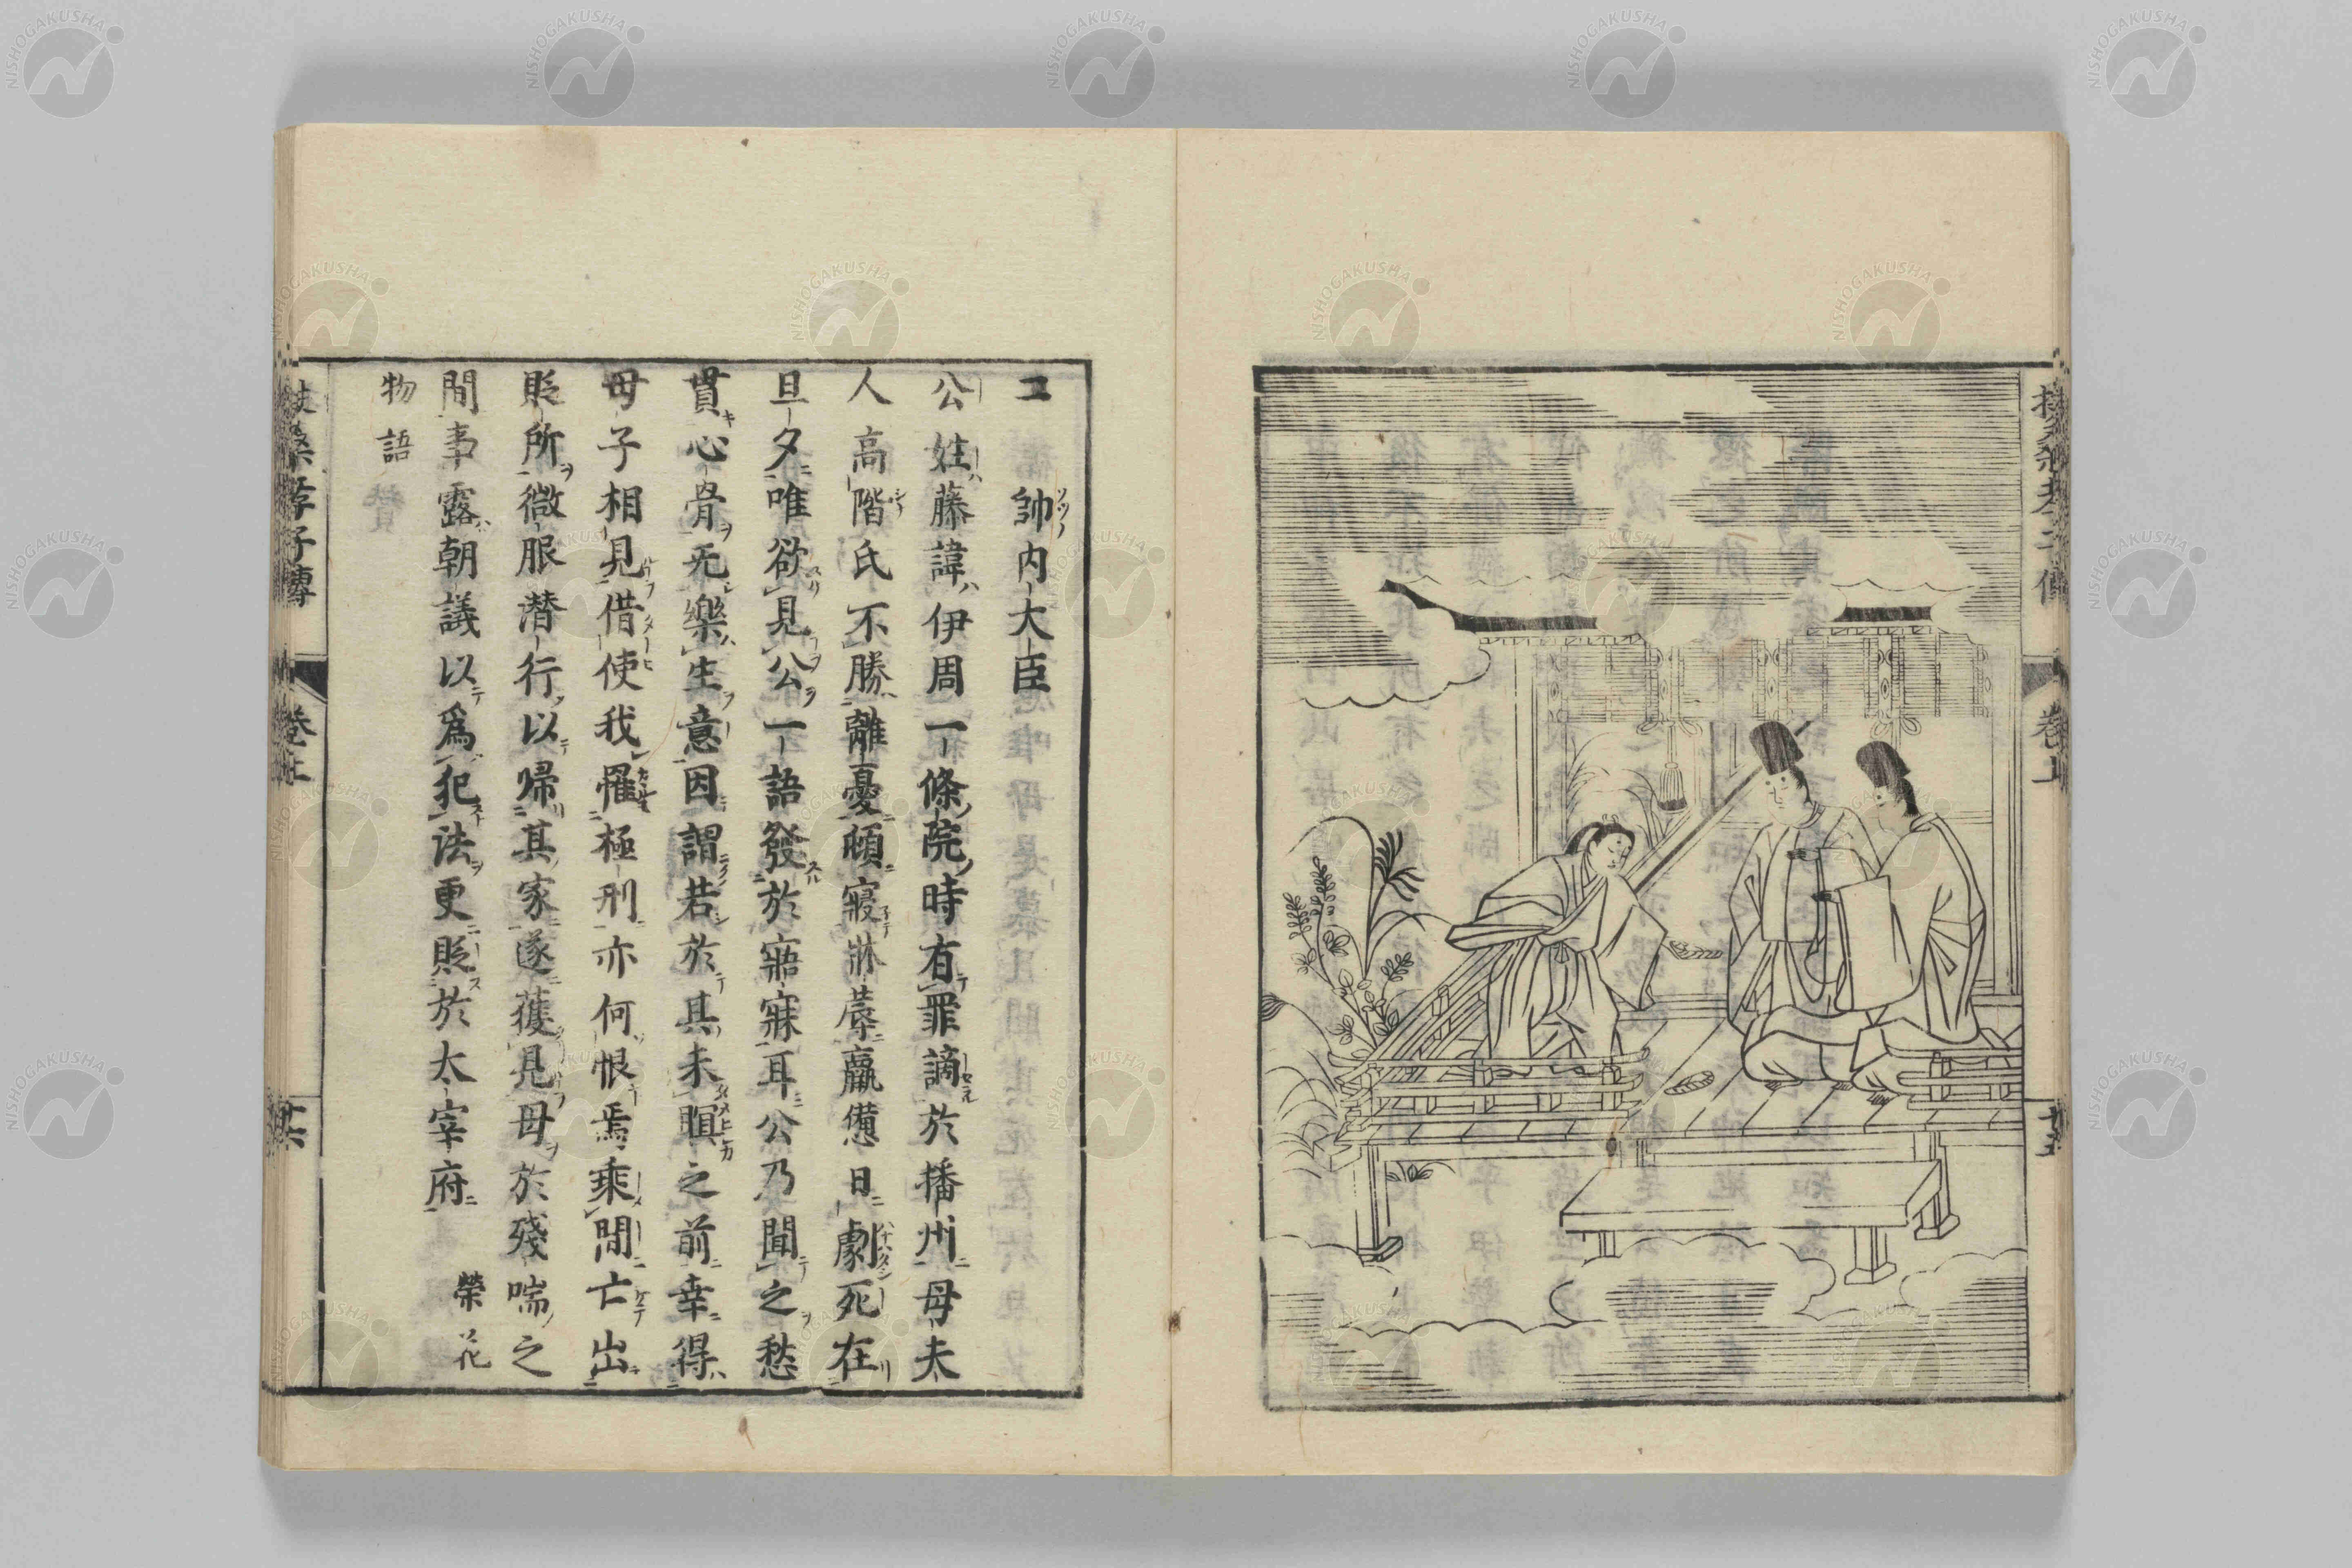 帥内大臣
公姓藤諱伊周一條院時有罪謫於播州母夫
人高階氏不勝離憂頓寢牀蓐羸憊日劇死在
旦夕唯欲見公一語發於寤寐耳公乃聞之愁
貫心骨无樂生意因謂若於其未瞑之前幸得
母子相見借使我罹極刑亦何恨焉乘間亡出
貶所微服潜行以帰其家遂獲見母於殘喘之
間事露朝議以爲犯法更貶於太宰府 榮花
物語
扶桑孝子傳 卷上 廿六
NISHOGAKUSHA